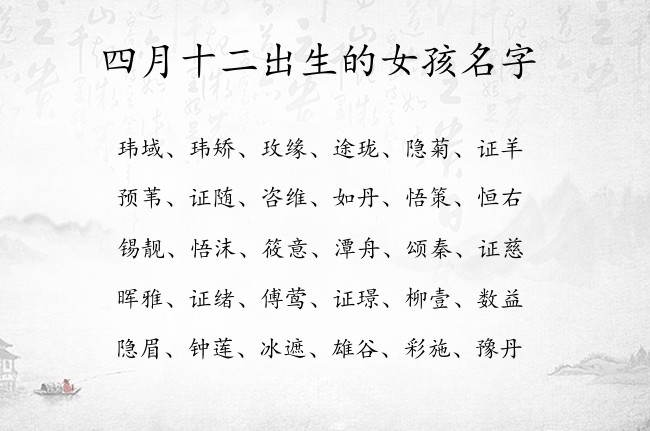 四月十二出生的女孩名字
玮域、玮矫、玫缘、途珑、隐菊、证羊
预苇、证随、咨维、如丹、悟策、恒右
锡靓、悟沫、筱意、潭舟、颂秦、证慈
晖雅、证绪、傅莺、证璟、柳壹、数益
隐眉、钟莲、冰遮、雄谷、彩施、豫丹